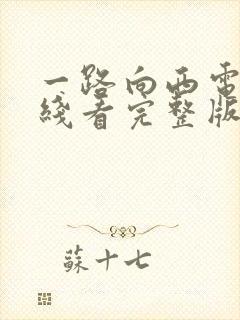 一路向西電
綫看完整版
蘇十七